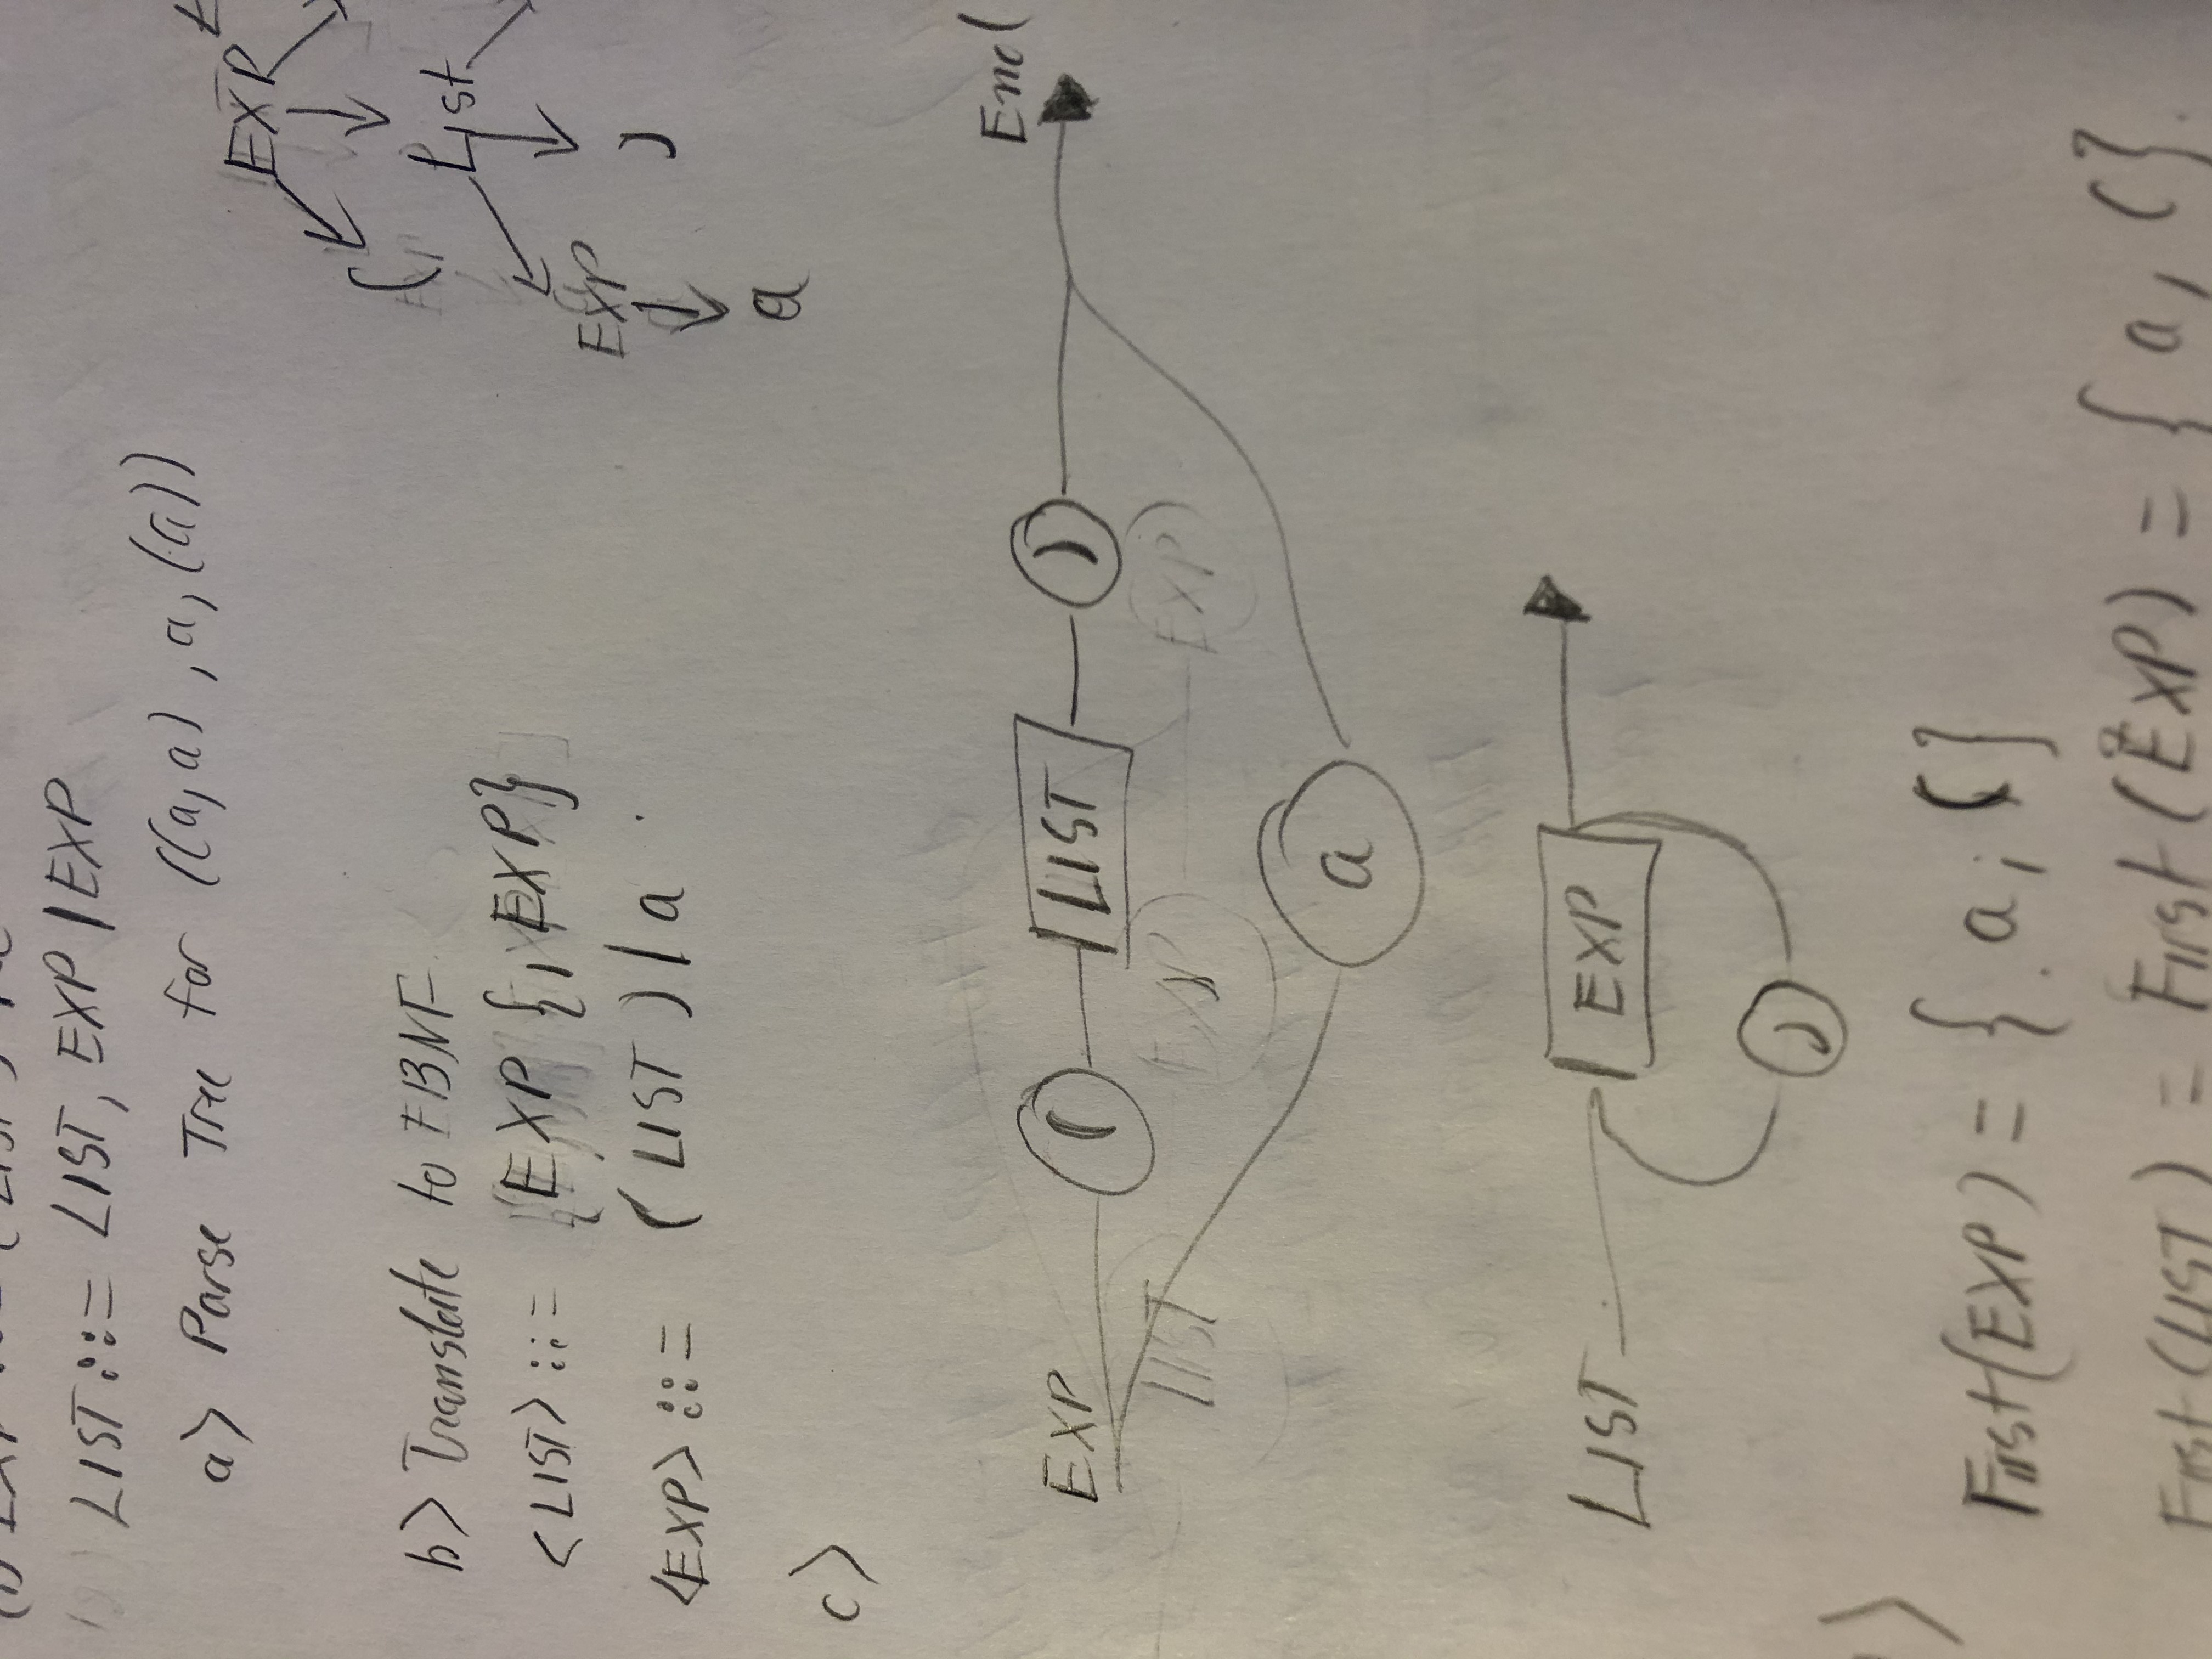 EXP ::= ( LIST )
LIST ::= LIST, EXP | EXP
a) Parse Tree for ((a,a), a, (a))
EXP
(
List
EXP ,
a
b) Translate to EBNF
<LIST> ::= EXP {, EXP}
<EXP> ::= ( LIST ) | a
c)
End
EXP ( LIST )
LIST EXP EXP
a
LIST EXP
,
)
First(EXP) = { a, ( }
First(LIST) = First(EXP) = { a, ( }